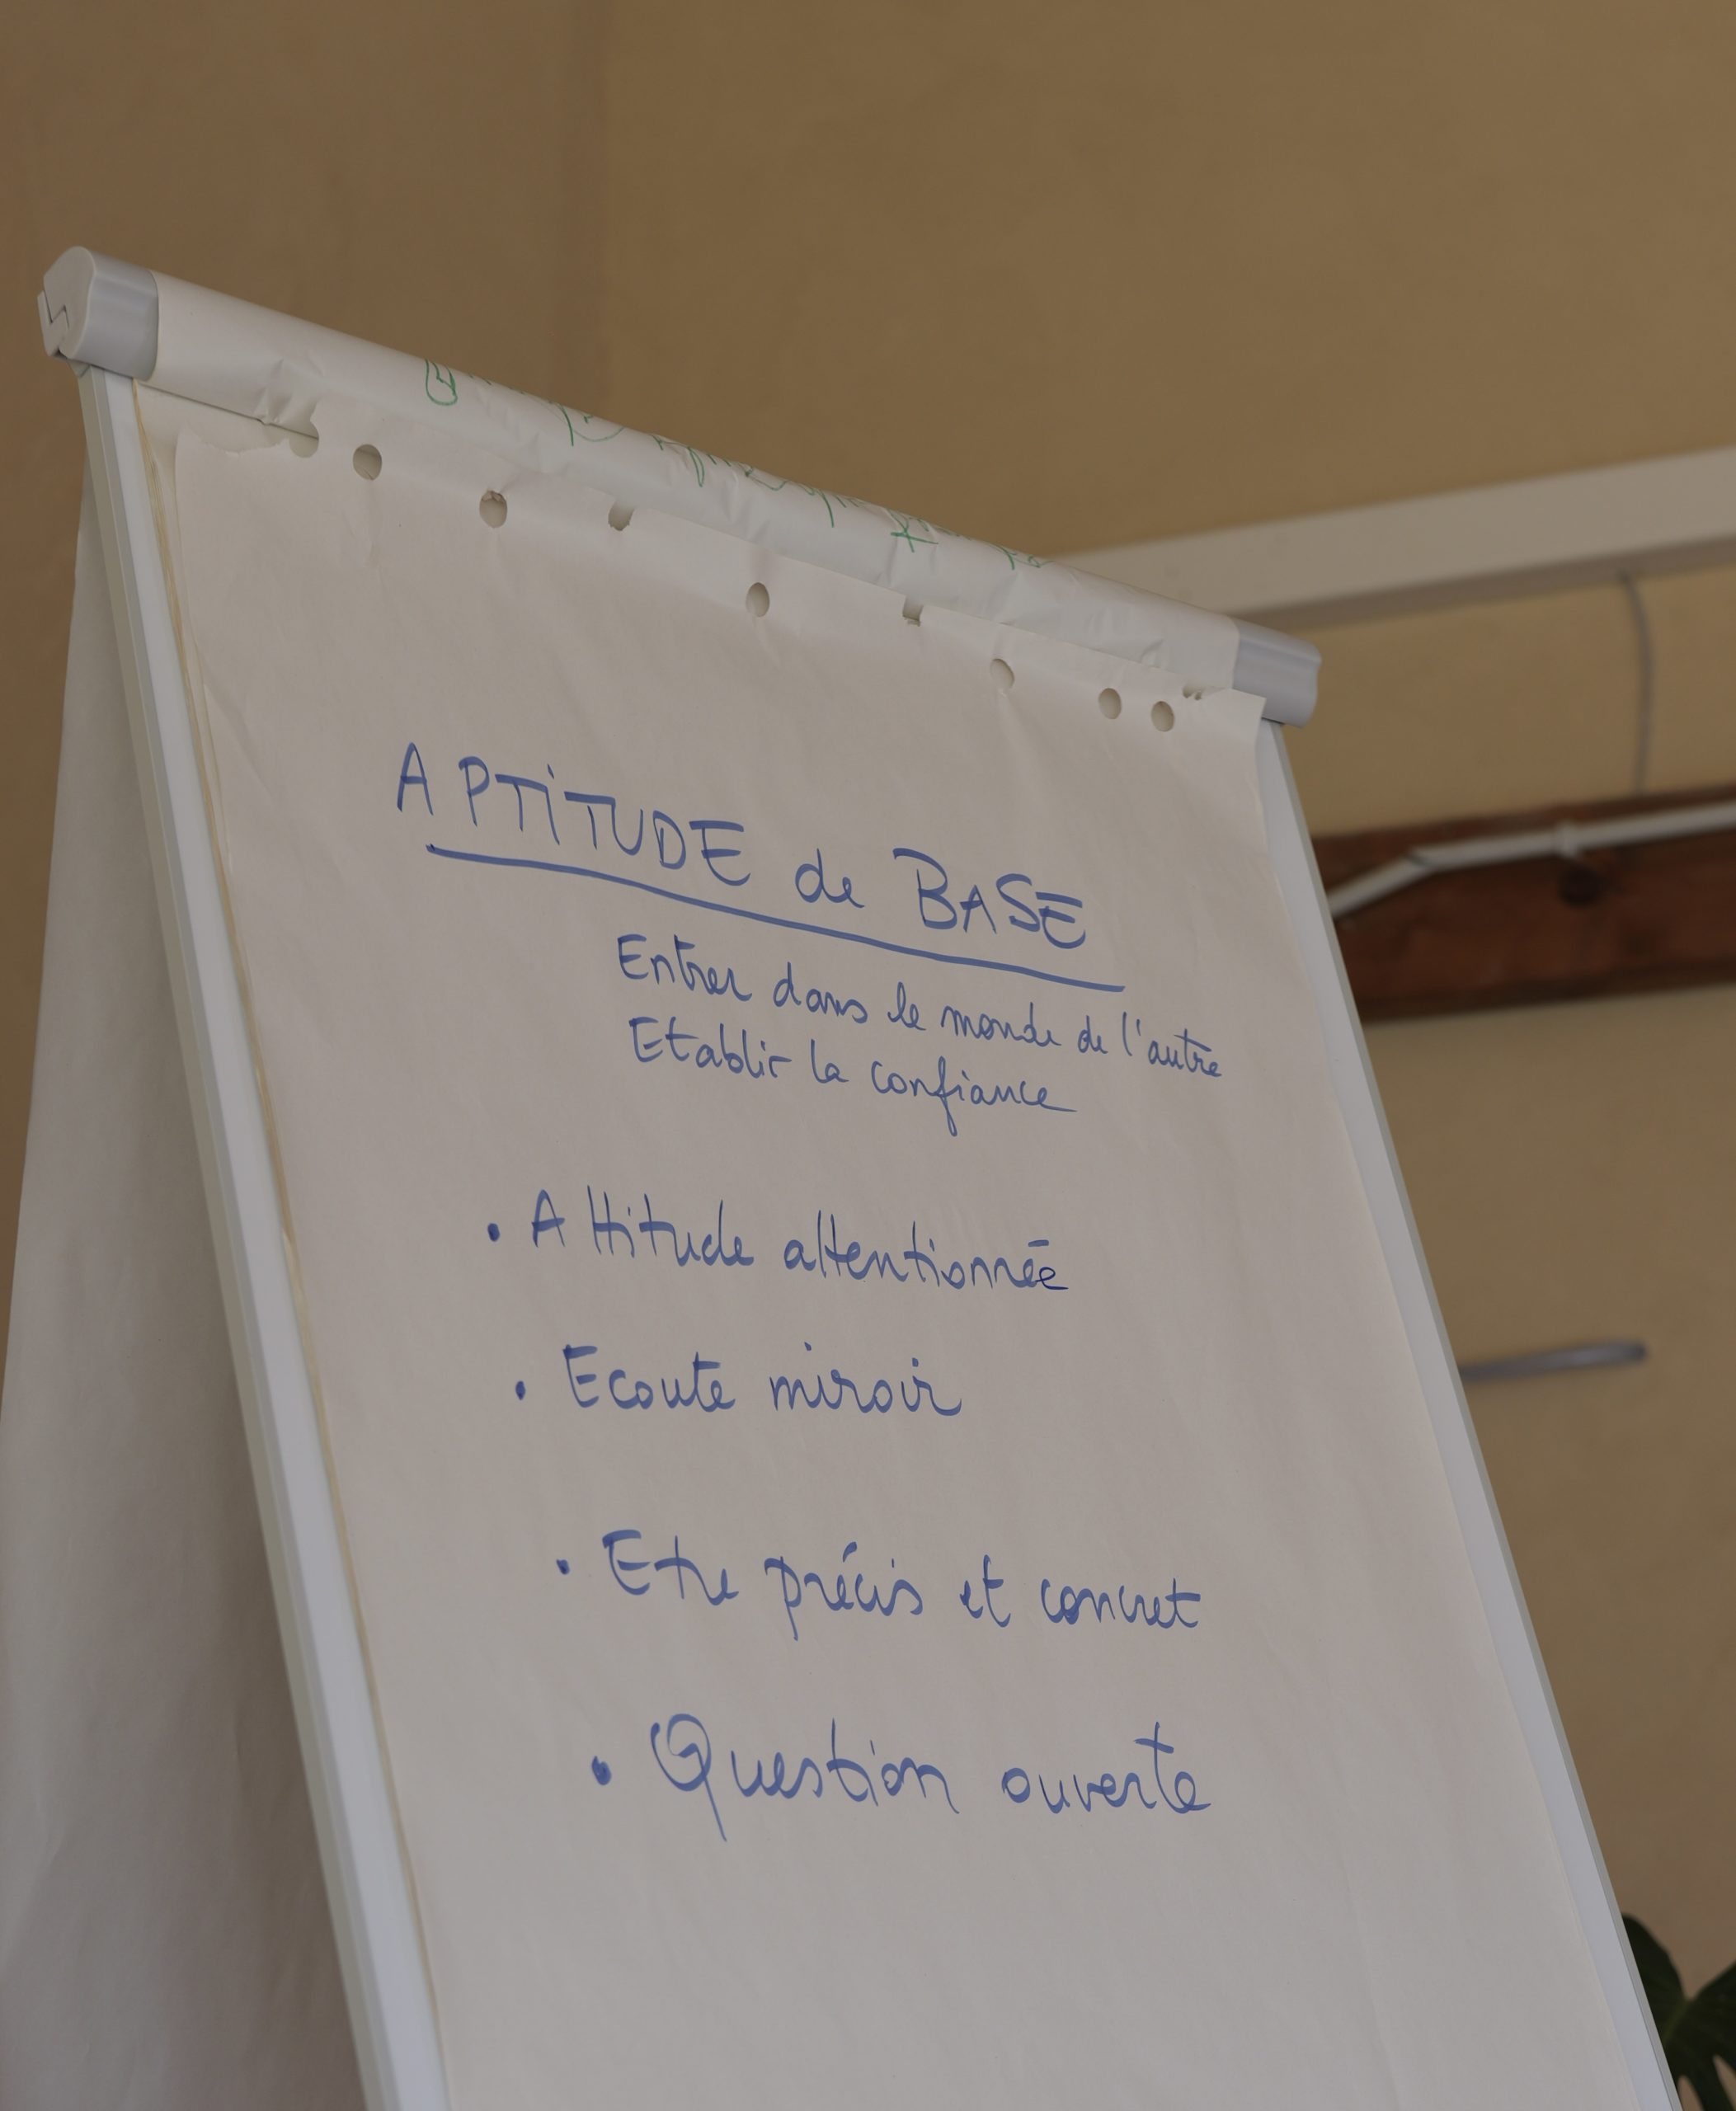 APTITUDE de BASE
Entrer dans le monde de l'autre
Etablir la confiance
• Attitude attentionnée
• Ecoute miroir
• Etre précis et concret
• Question ouverte